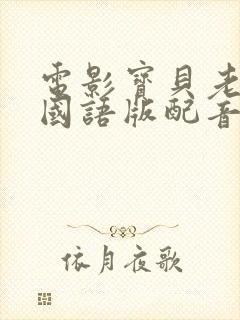 電影寶貝老
國語版配音
依月夜歌